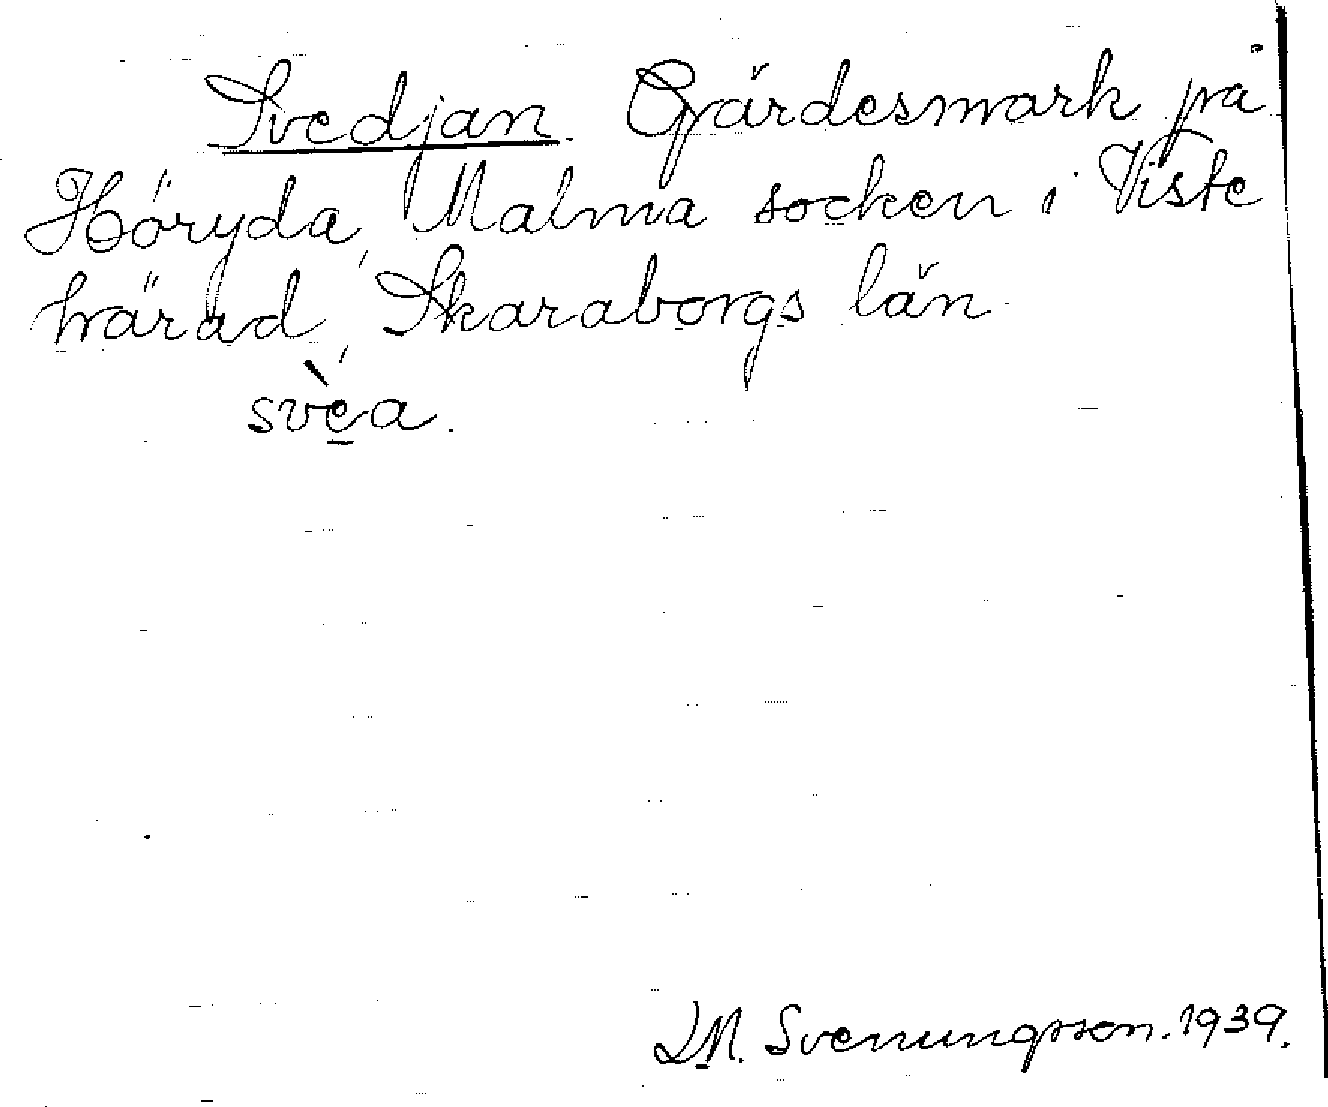 Svedjan. Gärdesmark på
Höryda, Malma socken i Viste
härad, Skaraborgs län.
svèa.
D.M. Svenungsson. 1939.